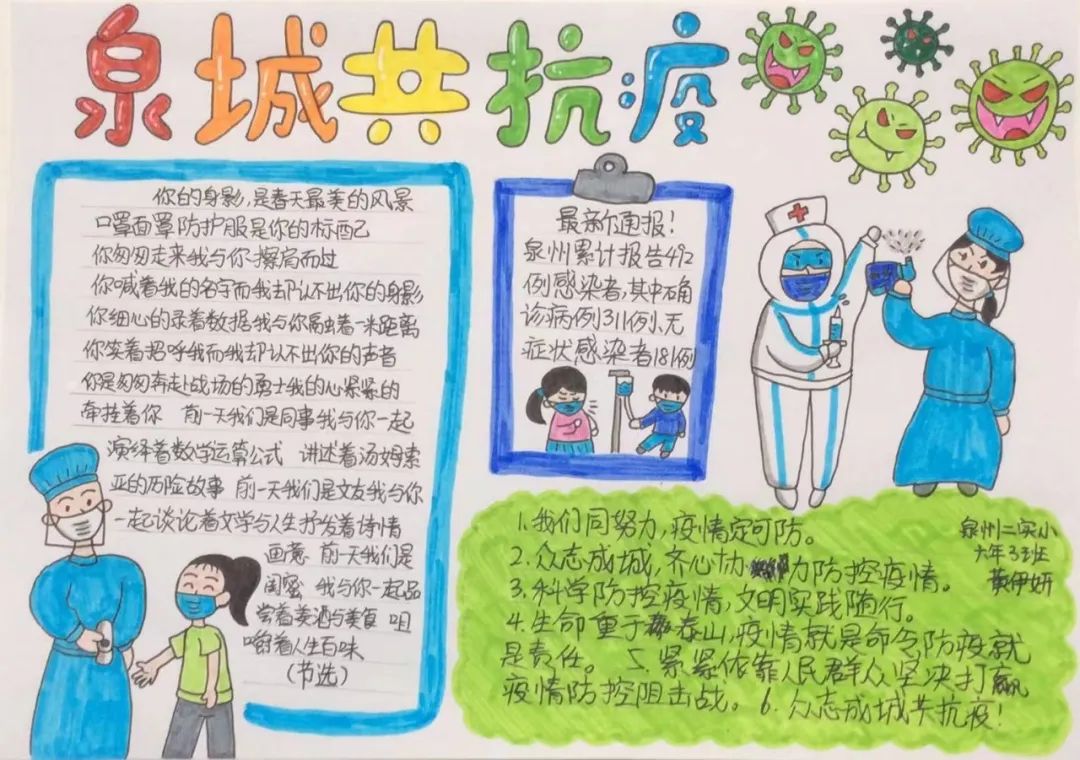 泉城共抗疫
你的身影,是春天最美的风景
口罩面罩防护服是你的标配
你匆匆走来我与你擦肩而过
你喊着我的名字而我却认不出你的身影
你细心的录着数据我与你隔着一米距离
你笑着招呼我而我却认不出你的声音
你是匆匆奔赴战场的勇士我的心紧紧的
牵挂着你 前一天我们是同事我与你一起
演绎着数学运算公式 讲述着汤姆索
亚的历险故事 前一天我们是文友我与你
一起谈论着文学与人生抒发着诗情
画意 前一天我们是
闺蜜 我与你一起品
尝着美酒与美食 咀
嚼着人生百味
(节选)
最新通报!
泉州累计报告492
例感染者,其中确
诊病例311例、无
症状感染者181例
1.我们同努力,疫情定可防。
2.众志成城,齐心协力防控疫情。
3.科学防控疫情,文明实践随行。
4.生命重于泰山,疫情就是命令,防疫就
是责任。 5.紧紧依靠人民群众坚决打赢
疫情防控阻击战。6.众志成城共抗疫!
泉州二实小
六年3班
黄伊妍